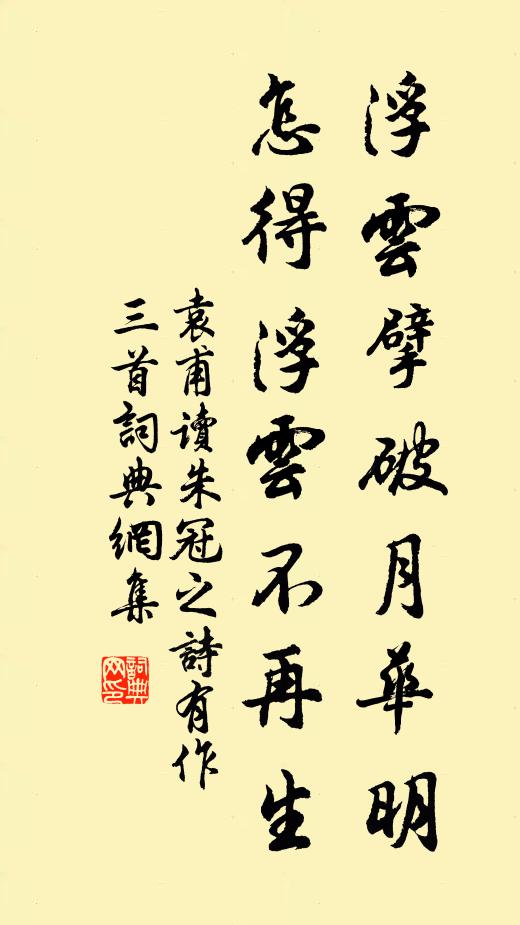 浮雲擘破月華明
怎得浮雲不再生
袁甫讀朱冠之詩有作
三首詞典網集
詞典網印